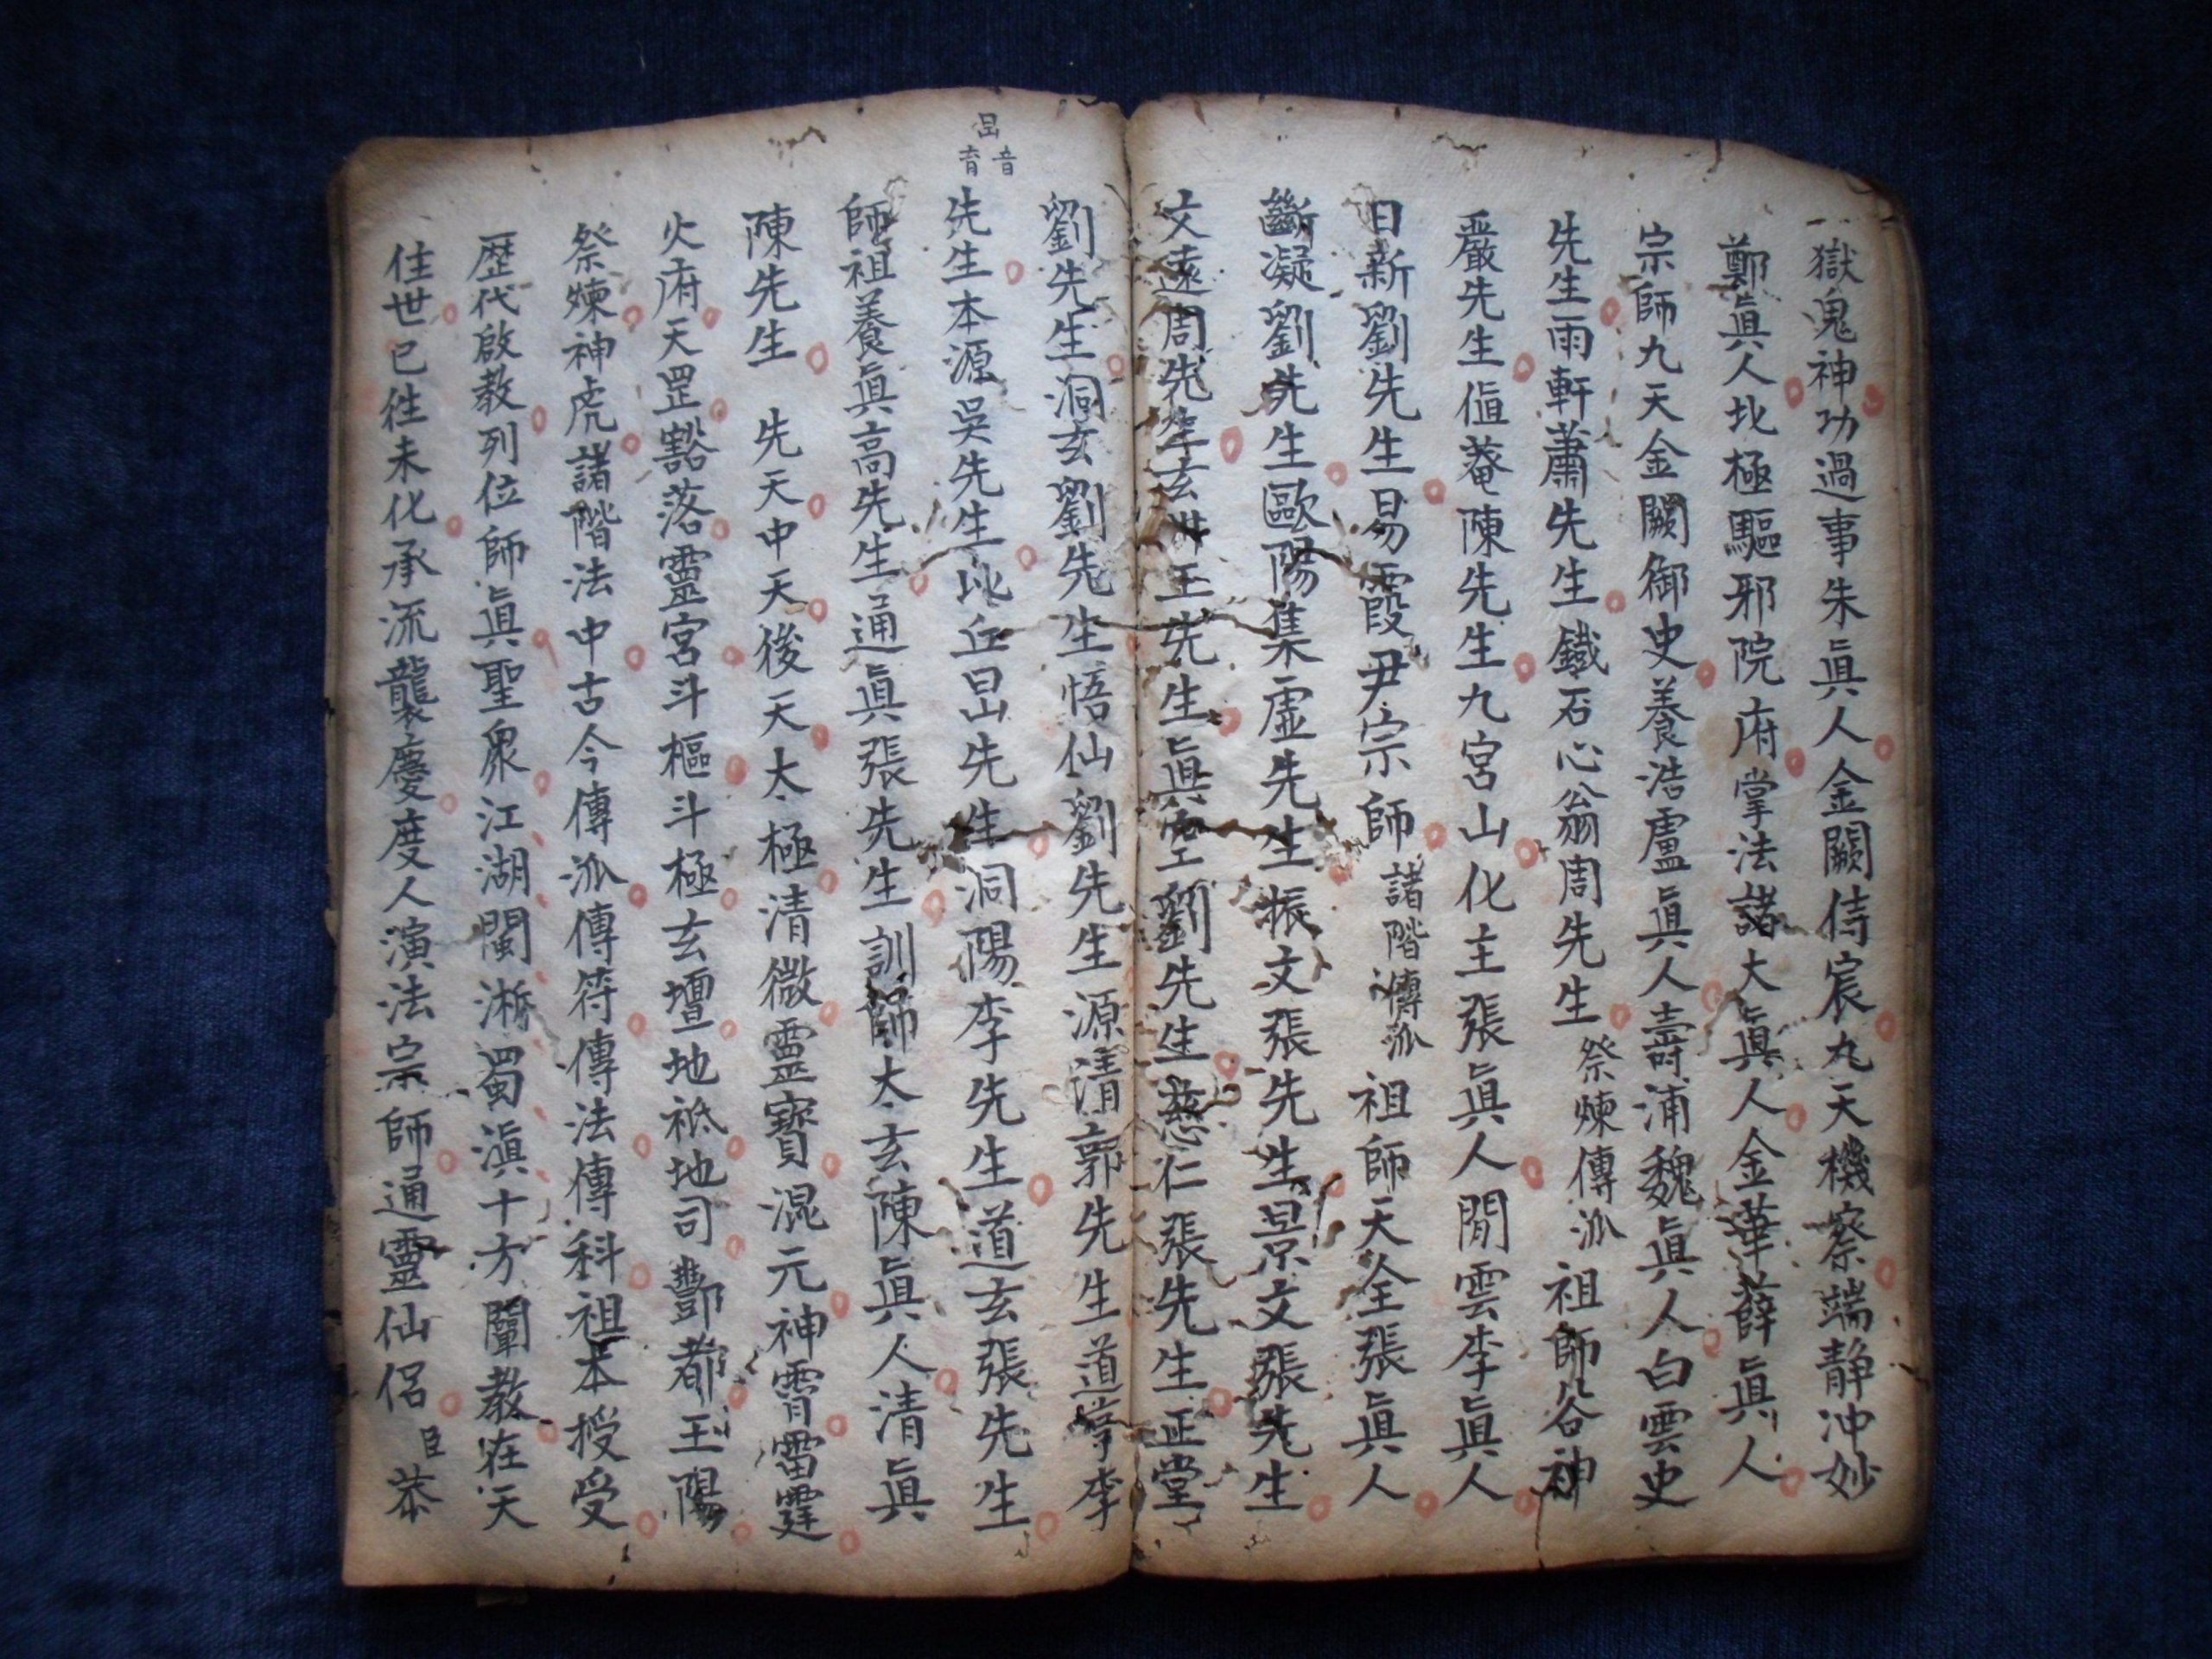 獄鬼神功過事朱眞人金闕侍宸九天機察端静冲妙
鄭眞人北極驅邪院府掌法諸大眞人金華薛眞人
宗師九天金闕御史養浩盧眞人壽浦魏眞人白雲史
先生雨軒蕭先生鐵石心翁周先生祭煉傳派祖師谷神
嚴先生値菴陳先生九宮山化主張眞人閒雲李眞人
日新劉先生易霞尹宗師諸階傳派祖師天全張眞人
斷凝劉先生歐陽集虛先生振文張先生景文張先生
文遠周先生玄洪王先生眞空劉先生慈仁張先生正堂
劉先生洞玄劉先生悟仙劉先生源清郭先生道亨李
昌 音育
先生本源吳先生丘昌先生洞陽李先生道玄張先生
師祖養眞高先生通眞張先生訓師太玄陳眞人清眞
陳先生 先天中天後天太極清微靈寶混元神霄雷霆
火府天罡豁落靈宮斗樞斗極玄壇地祇地司酆都王陽
祭煉神虎諸階法中古今傳派傳符傳法傳科祖本授受
歷代啟教列位師眞聖衆江湖閩淛蜀滇十方闡教在天
住世已往未化承流襲慶度人演法宗師通靈仙侶 臣 恭